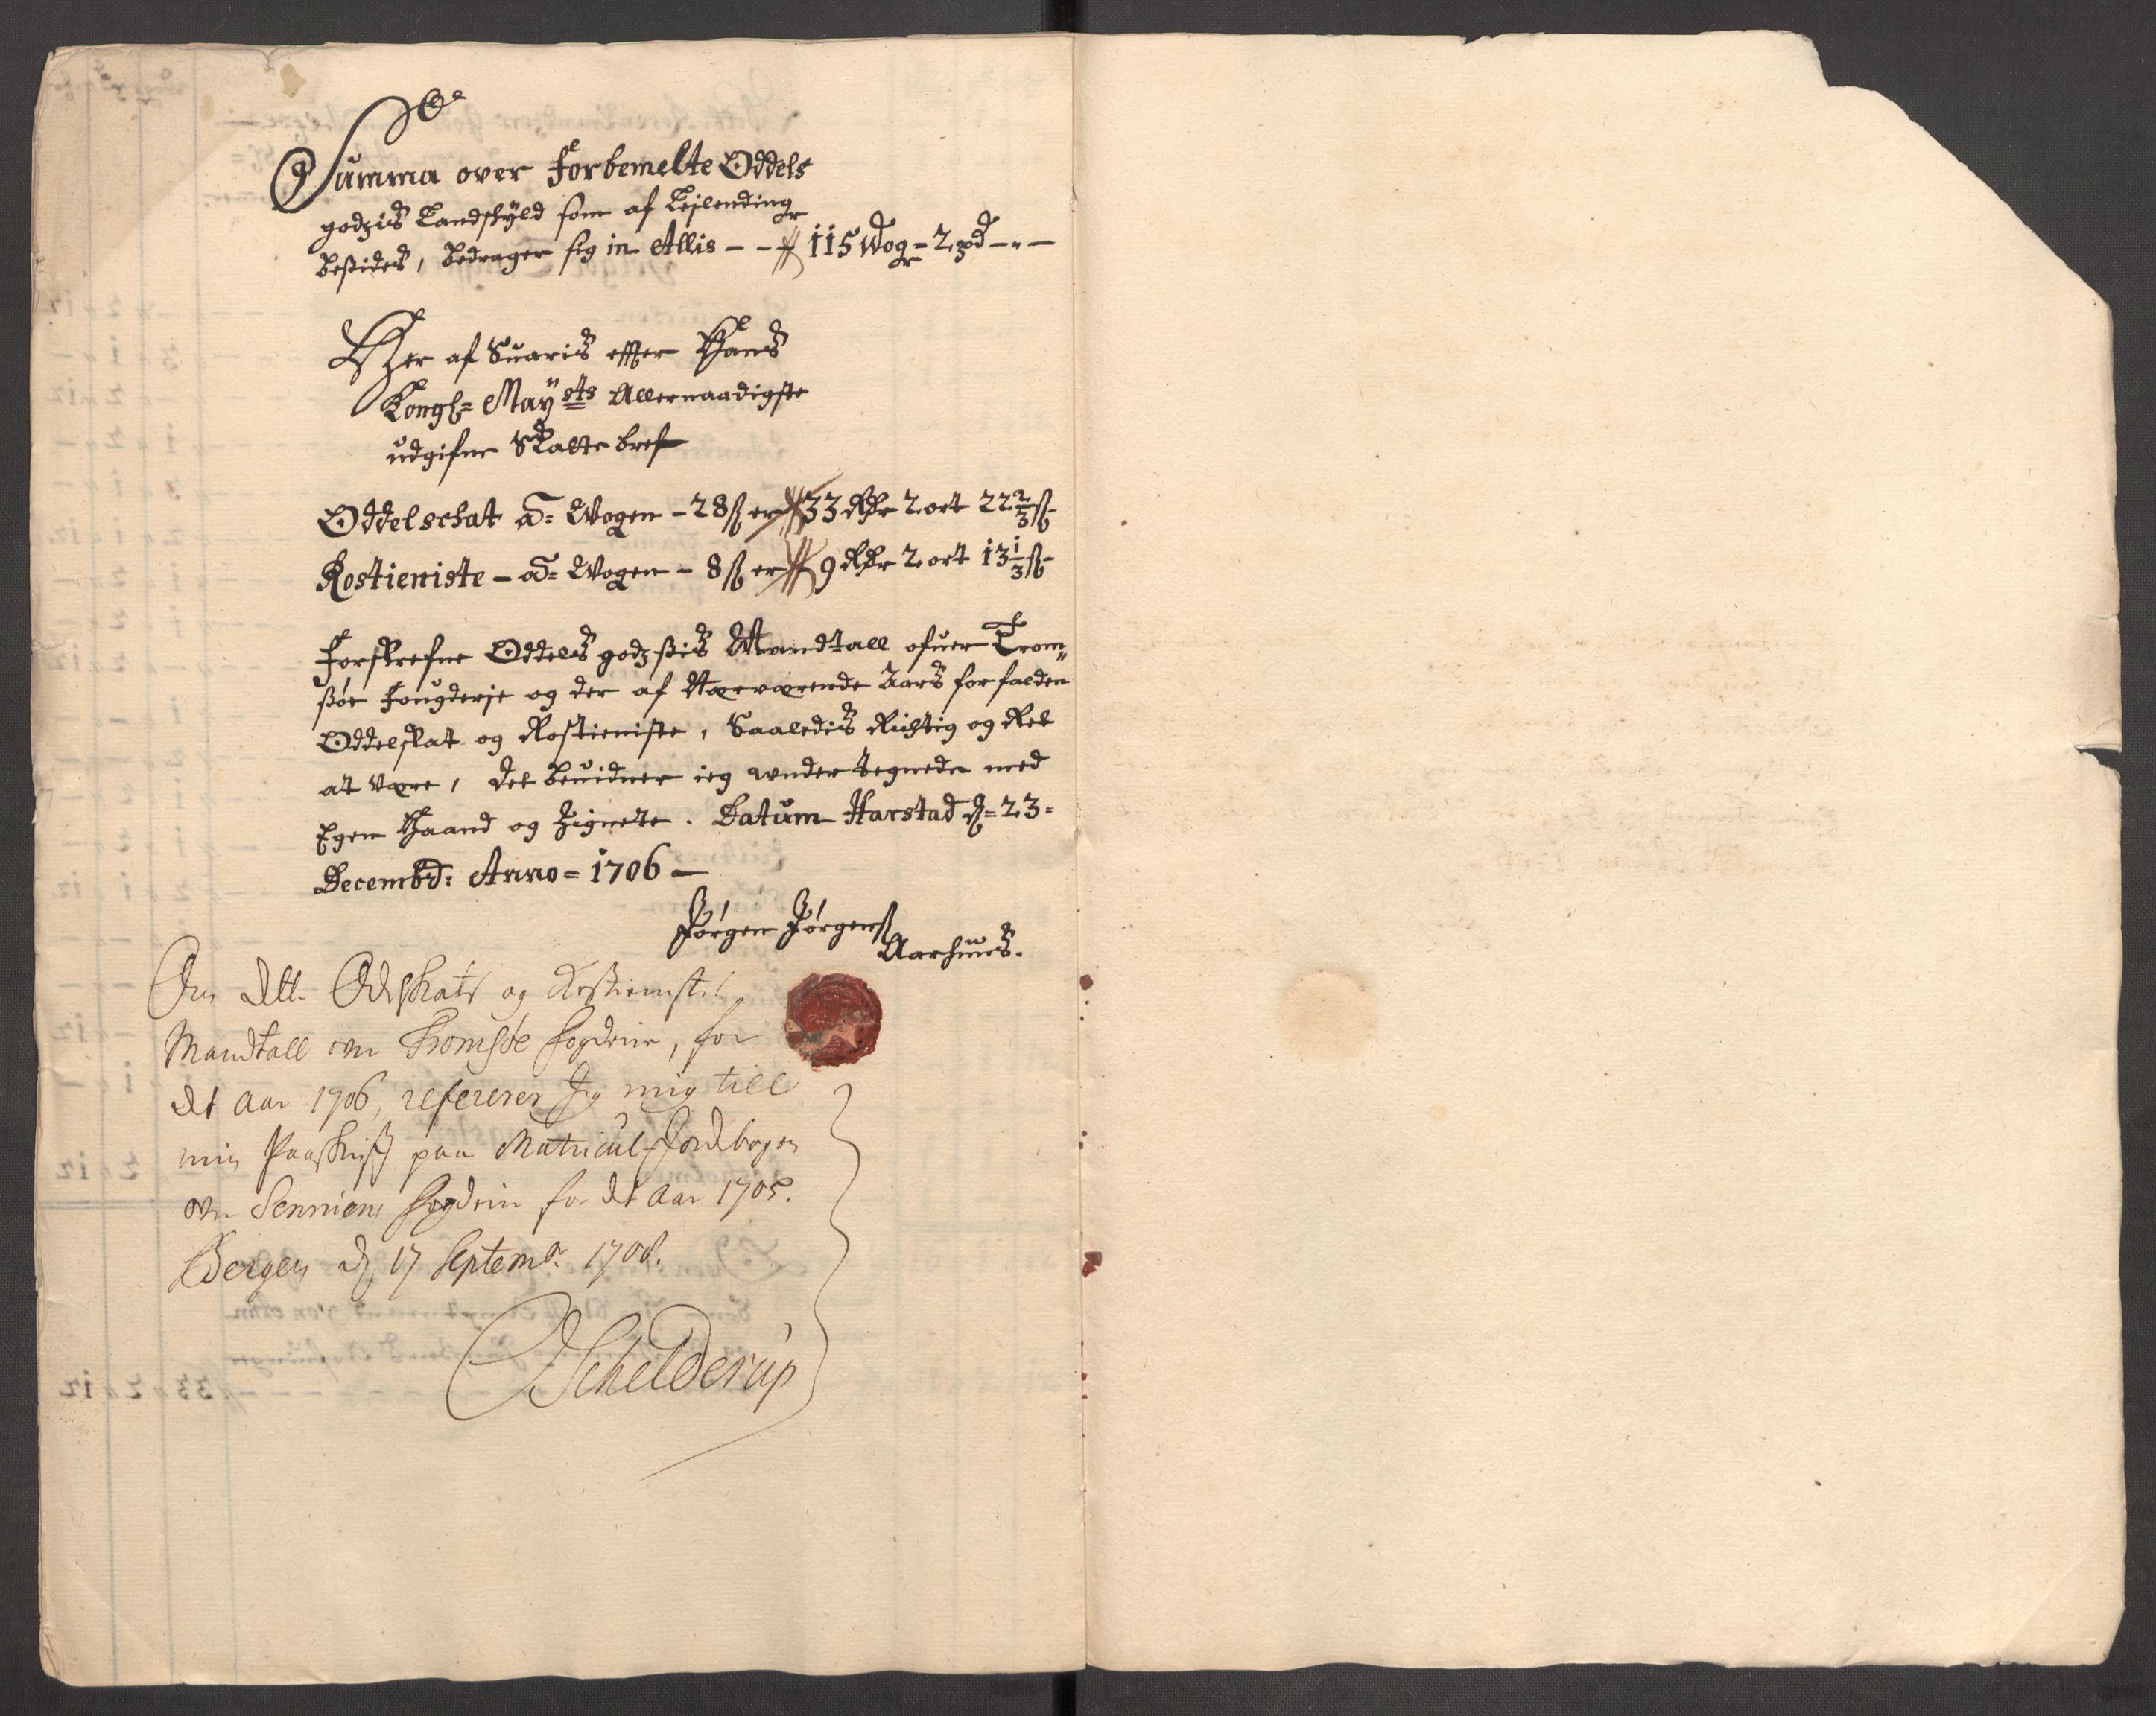 Summa over Forbemelte Oddels
godzis Landskÿld som af Leilending
besides, bedrager sig in Allis - - 115 Wog = 2 pd - " -
Her af Suaris effter Hans
Kongl= Maÿsts Allernaadigste
udgifne Skatte bref
Oddelschat a= Wogen - 28 ß er 33 Rdr 2 ort 22 2/3 ß
Rostieniste - a= Wogen - 8 ß er 9 Rdr 2 ort 13 1/3 ß
Forskrefne Oddels godzsis Mandtall ofuer Trom„
søe Fougderje og der af Nærværende Aars forfalden
Oddelskat og Rostieniste, Saaledis Richtig og Ret
at være, det beuidner ieg under tegnede med
Egen Haand og Zignete. Datum Harstad d= 23=
Decembr: Anno = 1706 -
Jørgen Jørgensß
Aarhuus.
Om dette Odelskats og Rostienstes
Mandtall over Tromsøe fogderie, for
det aar 1706, referer Jeg mig till
min Paaskrift paa Matricul Jordbogen
over Senniens fogderie for det aar 1705.
Bergen d 17 Septembr. 1708.
DSchelderup